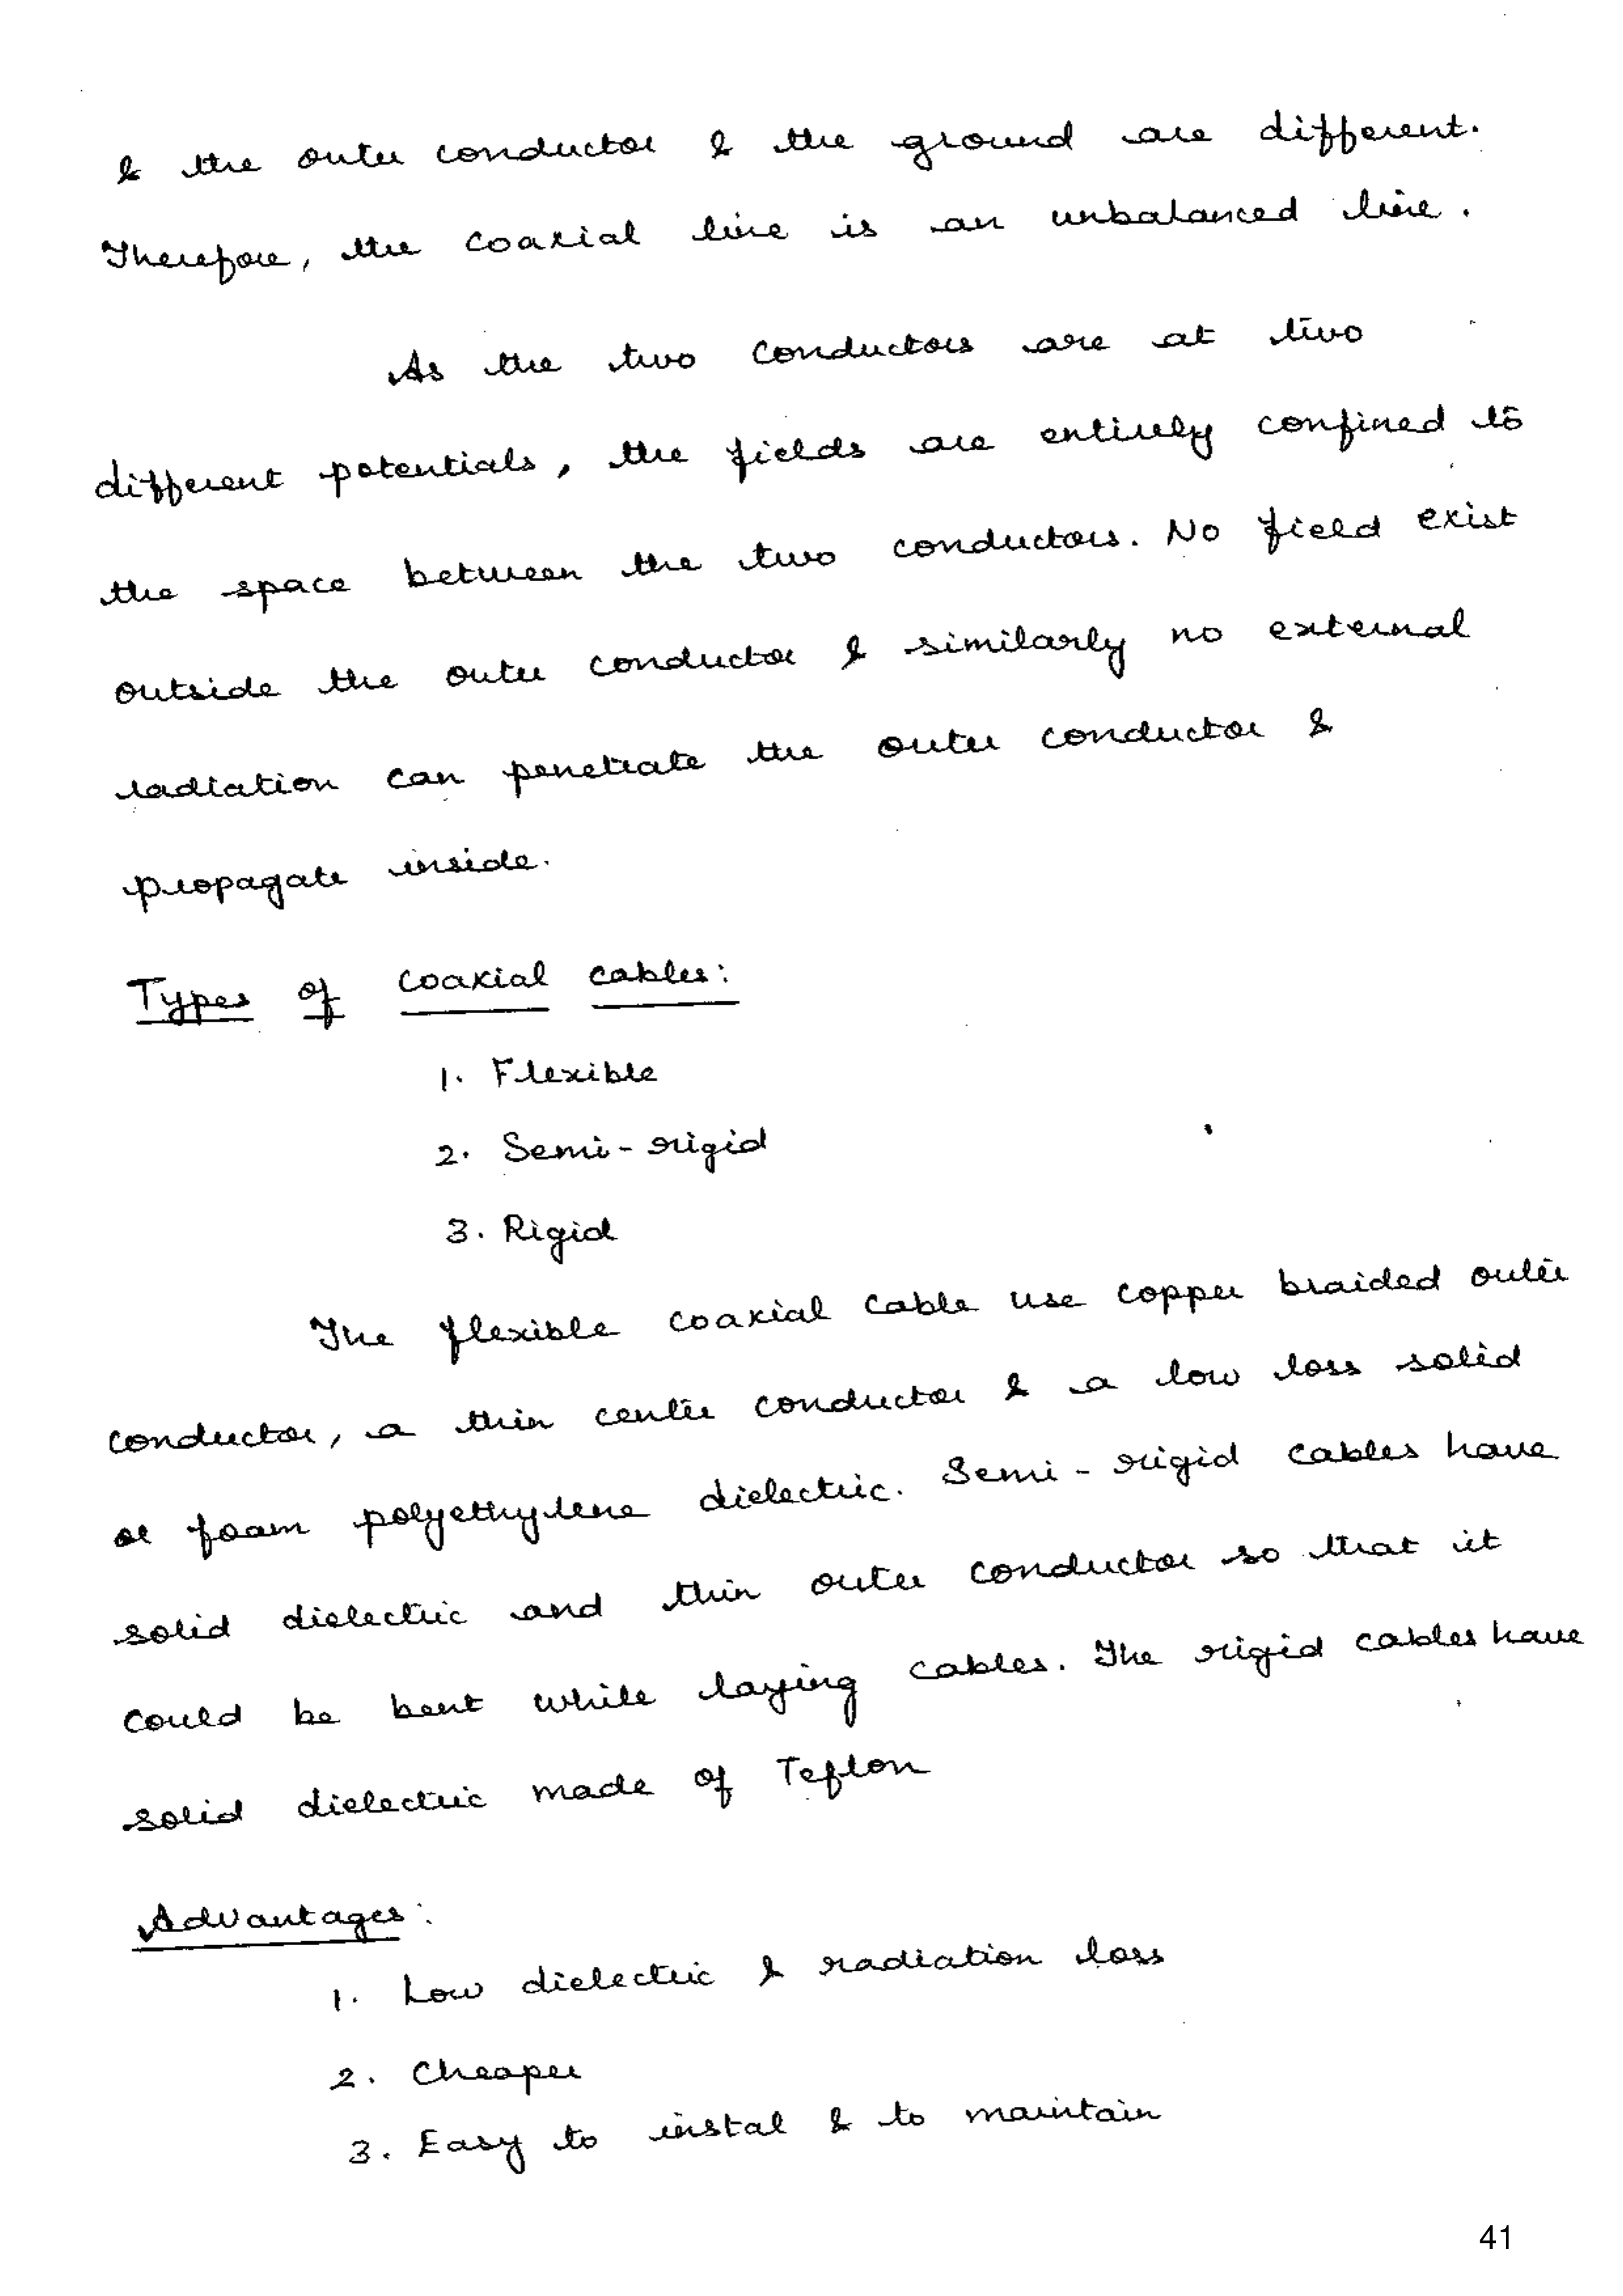 & the outer conductor & the ground are different.
Therefore, the coaxial line is an unbalanced line.
As the two conductors are at two
different potentials, the fields are entirely confined to
the space between the two conductors. No field exist
outside the outer conductor & similarly no external
radiation can penetrate the outer conductor &
propagate inside.
Types of coaxial cables:
1. Flexible
2. Semi-rigid
3. Rigid
The flexible coaxial cable use copper braided outer
conductor, a thin center conductor & a low loss solid
or foam polyethylene dielectric. Semi-rigid cables have
solid dielectric and thin outer conductor so that it
could be bent while laying cables. The rigid cables have
solid dielectric made of Teflon
Advantages:
1. Low dielectric & radiation loss
2. Cheaper
3. Easy to instal & to maintain
41